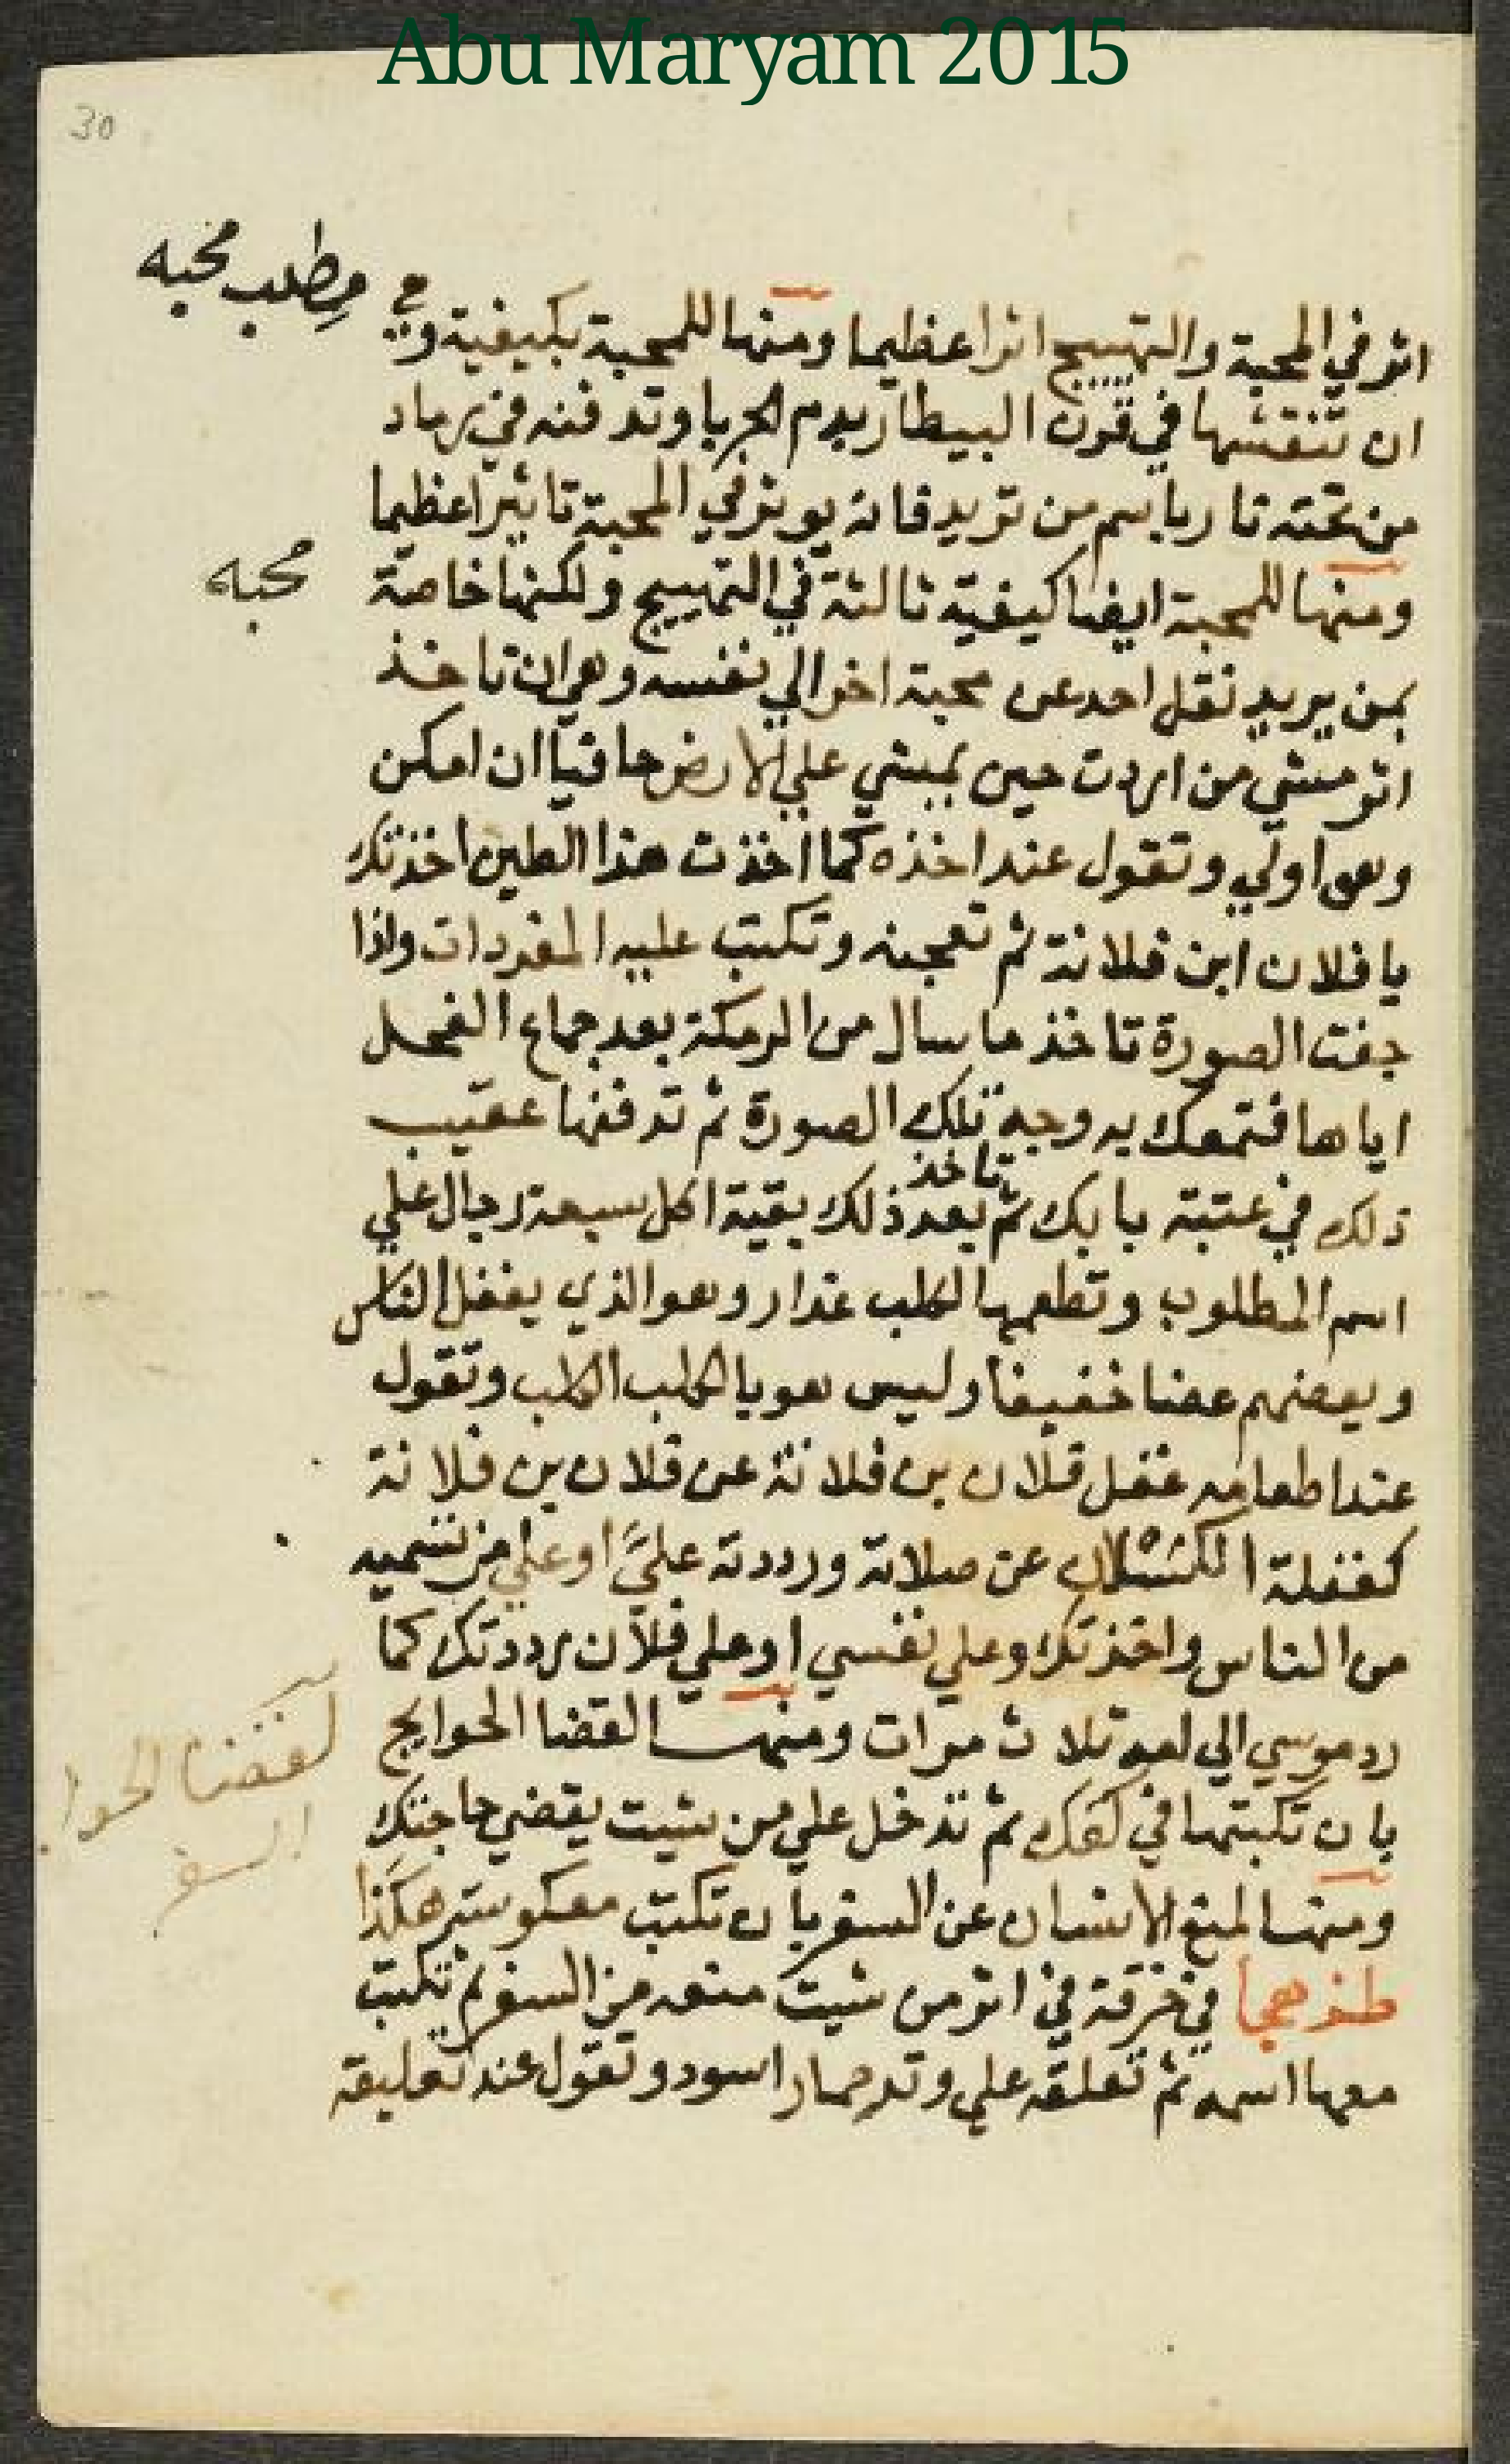 Abu Maryam 2015
30
مطلب محبه
اثر في المحبة والتهييج اثرا عظيما ومنها للمحبة بكيفية وهي
ان تنقشها في قرن البيطار بدم الحربا وتدفنه في رماد
من تحته نار باسم من تريد فانه يوثر في المحبة تاثيرا عظيما
محبه
ومنها للمحبة ايضا كيفية ثالثة في التهييج ولكنها خاصة
بمن يريد نقل احد عن محبة اخر الي نفسه وهي ان تاخذ
اثر مشي من اردت حين يمشي علي الارض حافيا ان امكن
وهو اولي وتقول عند اخذه كما اخذت هذا الطين اخذتك
يا فلان ابن فلانة ثم تعجنه وتكتب عليه المفردات واذا
جفت الصورة تاخذ ما سال من الرمكة بعد جماع الفحل
اياها فتمعك به وجه تلك الصورة ثم تدفنها عقيب
ذلك في عتبة بابك ثم تاخذ بعد ذلك بقية اكل سبعة رجال علي
اسم المطلوب وتطعمها لكلب غدار وهو الذي يغفل الناس
ويعضهم عضا خفيفا وليس هو بالكلب الكلب وتقول
عند اطعامه غفل فلان بن فلانة عن فلان بن فلانة
كغفلة الكسلان عن صلاته ورددته عليَّ او علي من تسميه
من الناس واخذتك وعلي نفسي او علي فلان رددتك كما
رد موسي الي امه ثلاث مرات ومنها لقضا الحوايج
لقضا الحوا
بان تكتبها في كفك ثم تدخل علي من شيت يقضي حاجتك
السفر
ومنها لمنع الانسان عن السفر بان تكتب معكوسته هكذا
في خرقة في اثر من شيت منعه من السفر ثم تكتب
معها اسمه ثم تعلقه علي وتد حمار اسود وتقول عند تعليقه